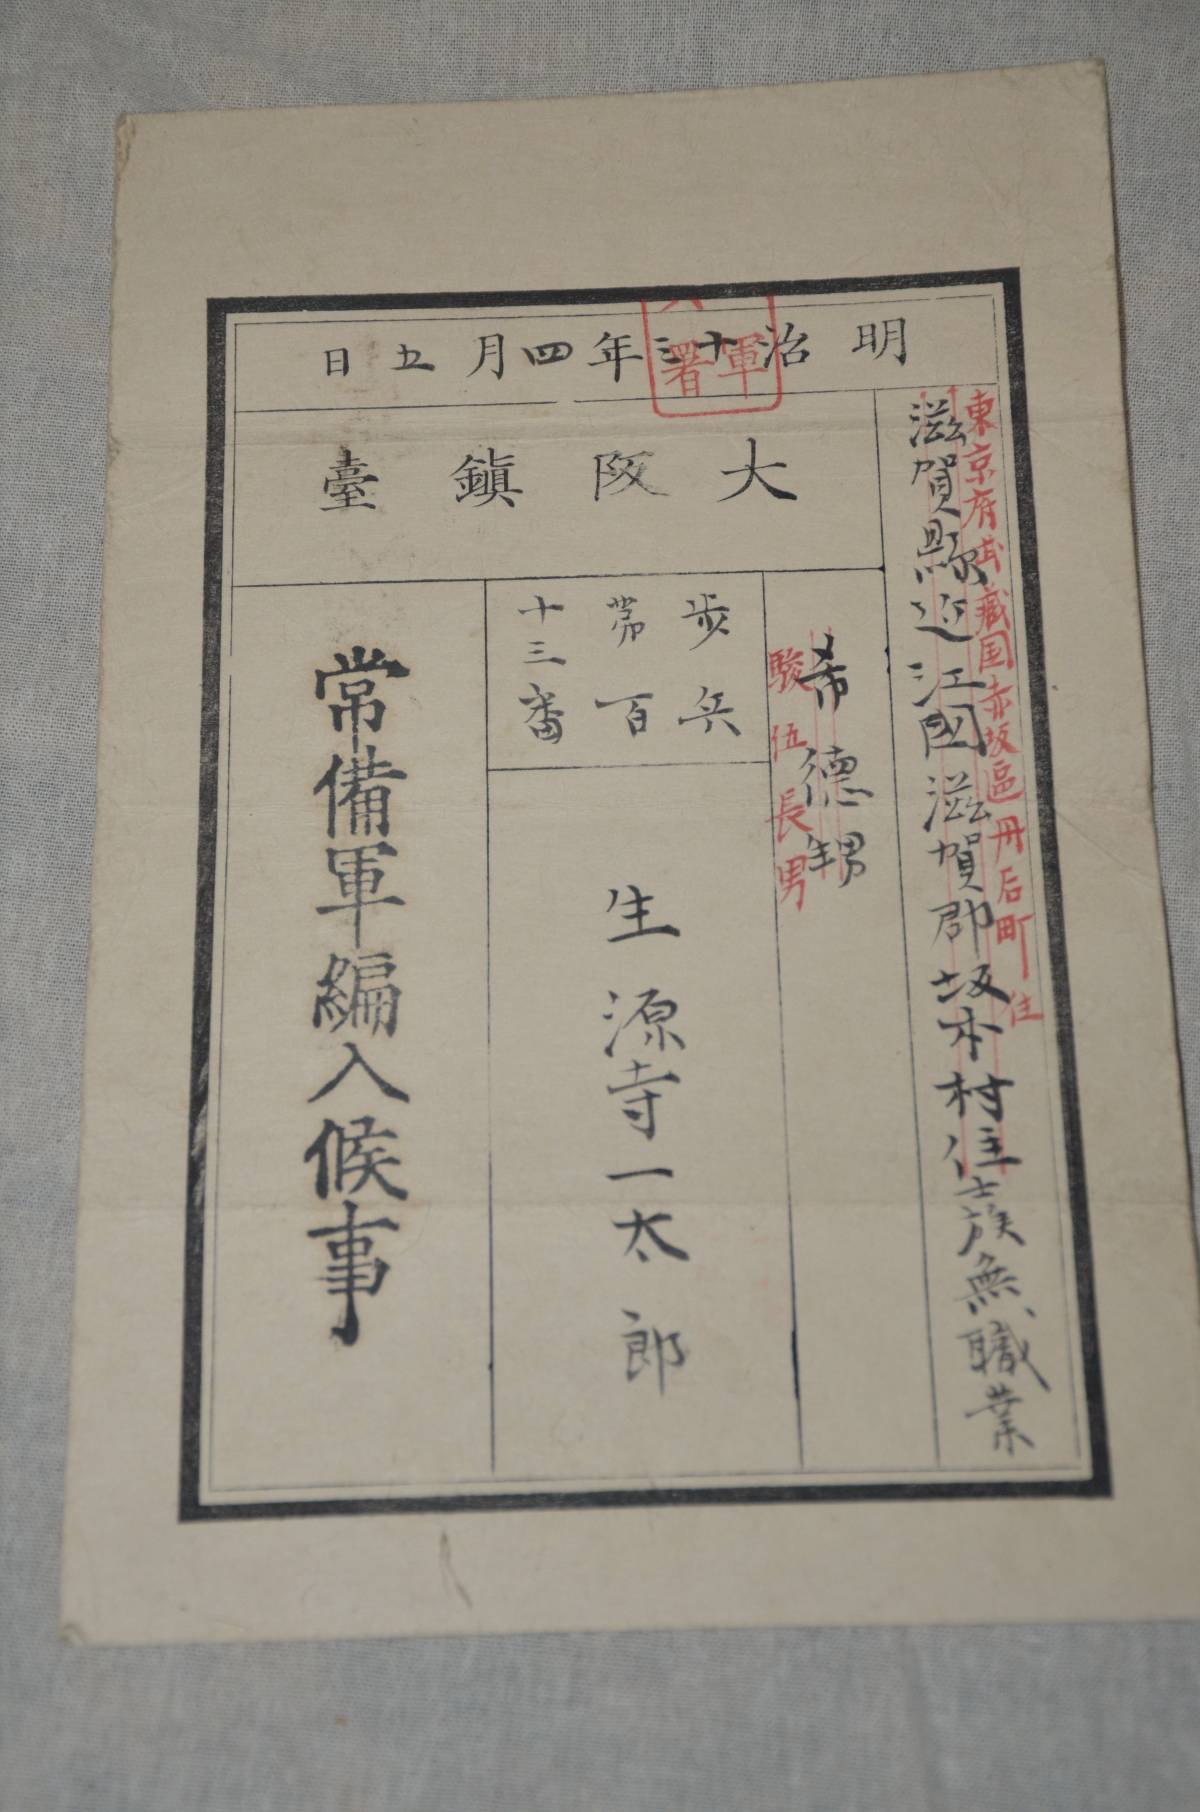 明治十三年四月五日
軍
署
東京府武蔵国赤坂區丹后町住
滋賀縣近江國滋賀郡坂本村住士族無職業
大阪鎮臺
希徳甥
駿伍長男
歩兵
第百
十三番
生源寺一太郎
常備軍編入候事